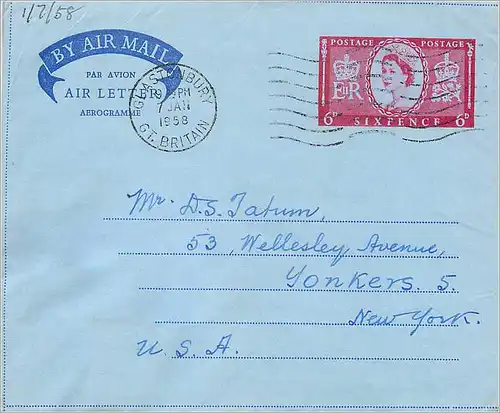 1/7/58
BY AIR MAIL
PAR AVION
AIR LETTER
AEROGRAMME
GLASTONBURY
PM
7 JAN
1958
GT. BRITAIN
POSTAGE POSTAGE
E R
6D SIXPENCE 6D
Mr. D.S. Tatum,
53, Wellesley Avenue,
Yonkers 5.
New York.
U.S.A.